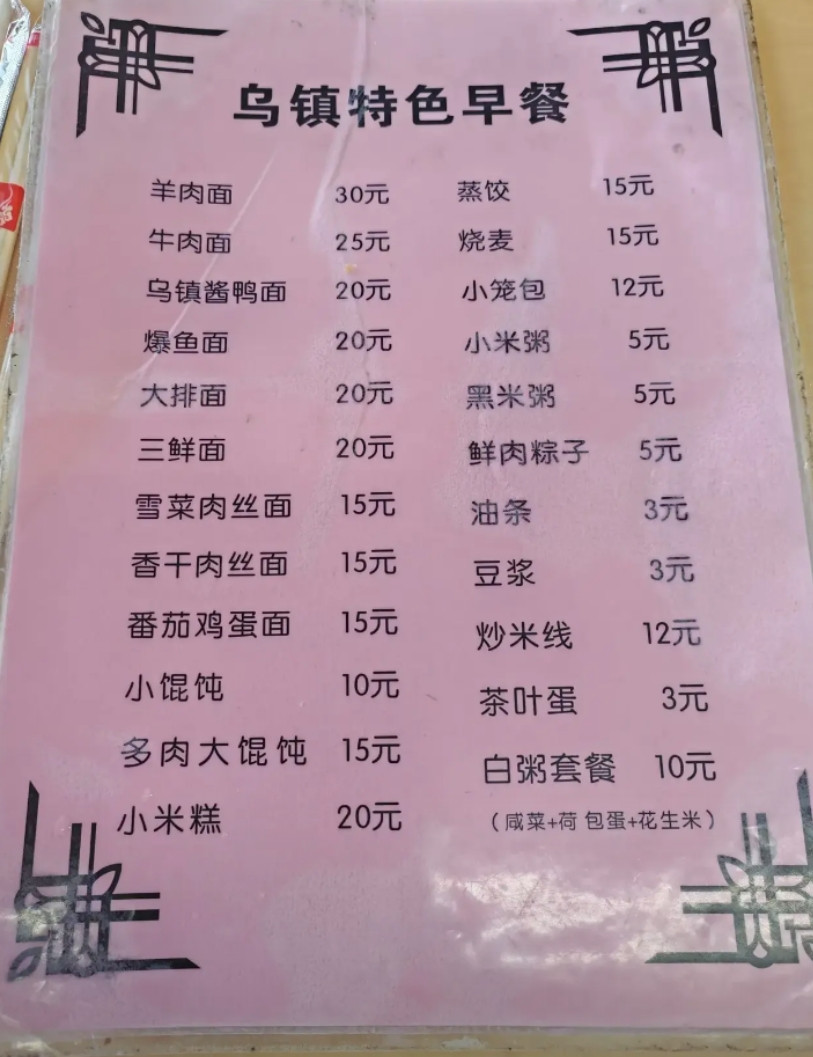 乌镇特色早餐
羊肉面 30元 蒸饺 15元
牛肉面 25元 烧麦 15元
乌镇酱鸭面 20元 小笼包 12元
爆鱼面 20元 小米粥 5元
大排面 20元 黑米粥 5元
三鲜面 20元 鲜肉粽子 5元
雪菜肉丝面 15元 油条 3元
香干肉丝面 15元 豆浆 3元
番茄鸡蛋面 15元 炒米线 12元
小馄饨 10元 茶叶蛋 3元
多肉大馄饨 15元 白粥套餐 10元
小米糕 20元 （咸菜+荷 包蛋+花生米）